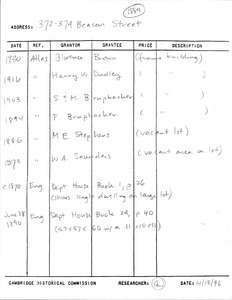 1884
ADDRESS: 372-374 Beacon Street
DATE REF. GRANTOR GRANTEE PRICE DESCRIPTION
1930 Atlas Florence Brown (frame building)
1916 " Harry W Dudley ( " )
1903 " S & M. Brupbacher ( " )
1894 " F Brupbacher ( " )
1886 " M E Stephens (vacant lot)
1873 " W.A. Saunders (vacant area no lot)
c 1870 Eng Dept House Book 1, p 26
(shows single dwelling on large lot)
June 28 Eng Dept House Book 29, p 40
1890 (57x57 x 60 w/ a 11 x
CAMBRIDGE HISTORICAL COMMISSION RESEARCHER: DATE: 4/18/96